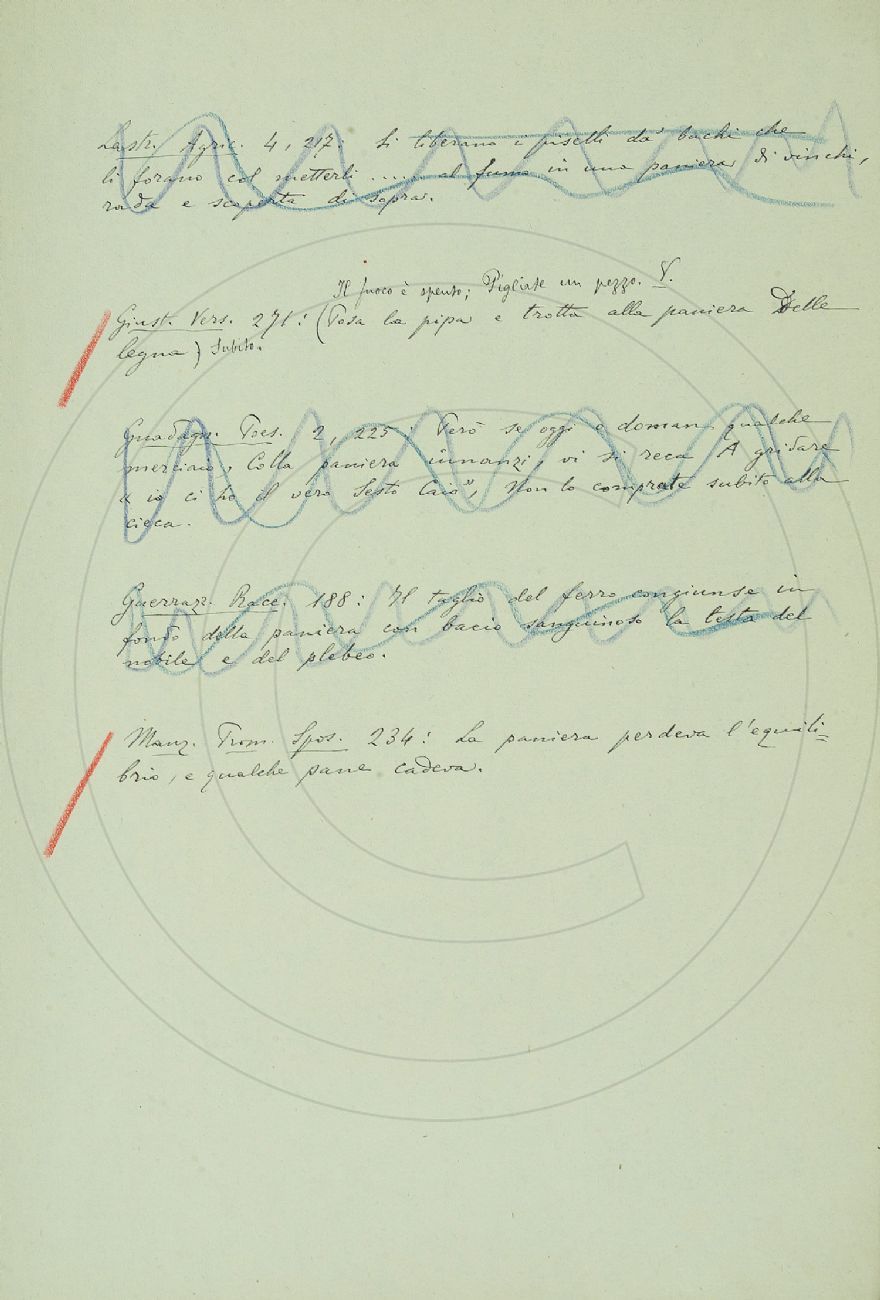 Lastr. Agric. 4, 217: Si liberano i piselli da' bachi che
li forano col metterli ..... al fumo in una paniera di vinchi,
rada e scoperta di sopra.
Il fuoco è spento; Pigliate un pezzo. V.
Giust. Vers. 271: (Posa la pipa e trotta alla paniera Delle
legna) Subito.
Guadagn. Poes. 2, 225: Però se oggi o doman qualche
merciaio, Colla paniera innanzi, vi si reca A gridare
« io ci ho il vero Sesto Caio", Non lo comprate subito alla
cieca.
Guerrazz. Racc. 188: Il taglio del ferro congiunse in
fondo della paniera con bacio sanguinoso la testa del
nobile e del plebeo.
Manz. Prom. Spos. 234: La paniera perdeva l'equili=
brio, e qualche pane cadeva.